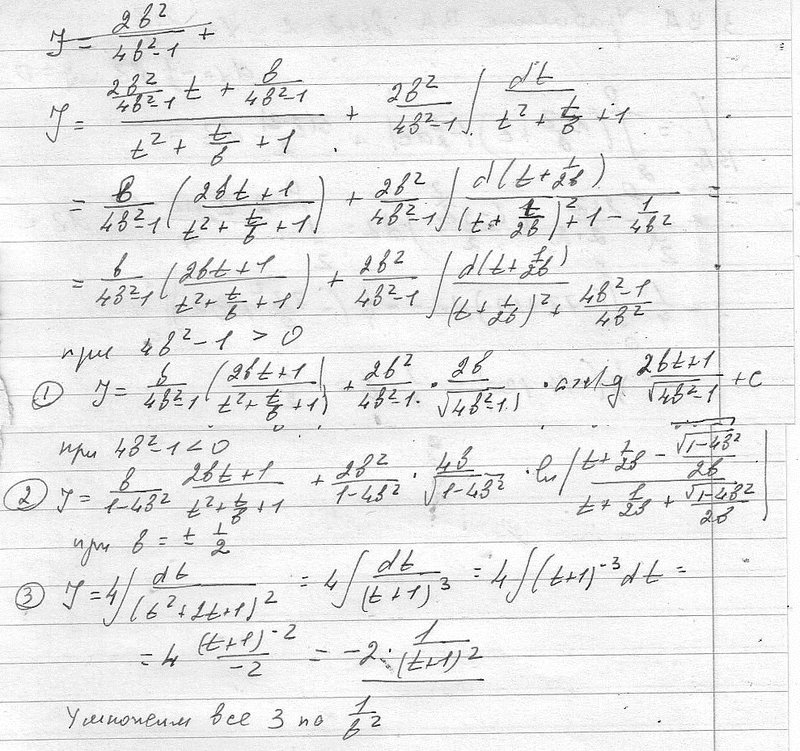 J = 2b²/(4b²-1) +
J = (2b²/(4b²-1) t + b/(4b²-1))/(t² + t/b + 1) + 2b²/(4b²-1) ∫ dt/(t² + t/b + 1)
= b/(4b²-1) ((2bt+1)/(t² + t/b + 1)) + 2b²/(4b²-1) ∫ d(t + 1/2b)/((t + 1/2b)² + 1 - 1/4b²) =
= b/(4b²-1) ((2bt+1)/(t² + t/b + 1)) + 2b²/(4b²-1) ∫ d(t + 1/2b)/((t + 1/2b)² + (4b²-1)/4b²)
при 4b²-1 > 0
① J = b/(4b²-1) ((2bt+1)/(t² + t/b + 1)) + 2b²/(4b²-1) · 2b/√(4b²-1) · arctg (2bt+1)/√(4b²-1) + C
при 4b²-1 < 0
② J = b/(1-4b²) (2bt+1)/(t² + t/b + 1) + 2b²/(1-4b²) · 4b/√(1-4b²) · ln |(t + 1/2b - √(1-4b²)/2b)/(t + 1/2b + √(1-4b²)/2b)|
при b = ± 1/2
③ J = 4∫ dt/(t²+2t+1)² = 4∫ dt/(t+1)³ = 4∫(t+1)⁻³ dt =
= 4 (t+1)⁻²/-2 = -2 · 1/(t+1)²
Умножим все 3 на 1/b²